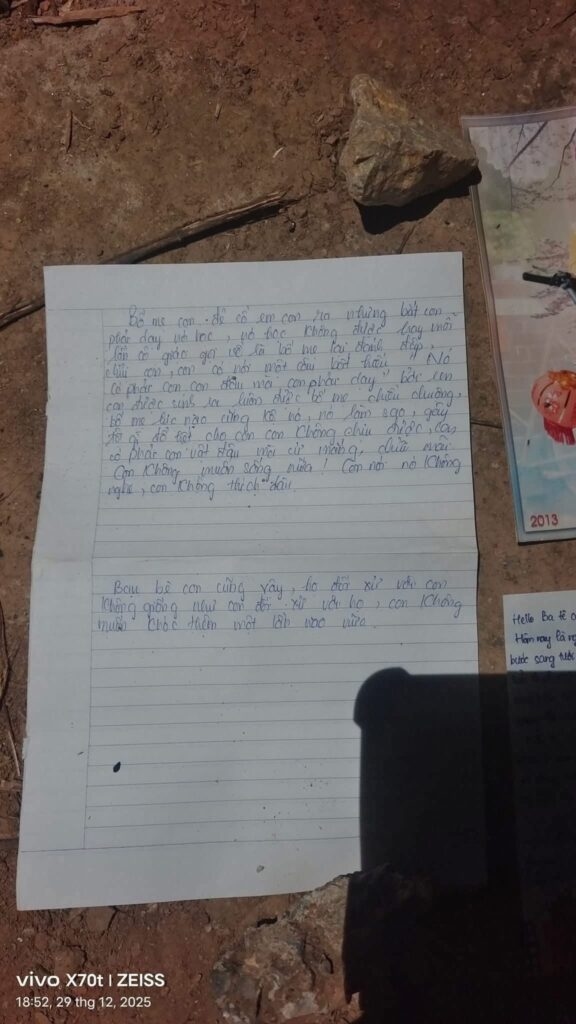 Bố mẹ con đẻ cô em con ra nhưng bắt con
phải dạy nó học, nó học không được hay mỗi
lần cô giáo gọi về là bố mẹ lại đánh đập,
chửi con, con có nói một câu bất hiếu " Nó
có phải con con đâu mà con phải dạy", bức em
con được sinh ra luôn được bố mẹ chiều chuộng,
bố mẹ lúc nào cũng kệ nó, nó làm sao, gây
tội gì đổ hết cho con con không chịu được,
có phải con vứt đâu mà cứ mắng, chửi mãi.
Con không muốn sống nữa! Con nói nó không
nghe, con không thích đâu.
Bạn bè con cũng vậy, họ đối xử với con
không giống như con đối xử với họ, con không
muốn khóc thêm một lần nào nữa.
2013
Hello Ba tê
Hôm nay là
bước sang tuổi
vivo X70t | ZEISS
18:52, 29 thg 12, 2025